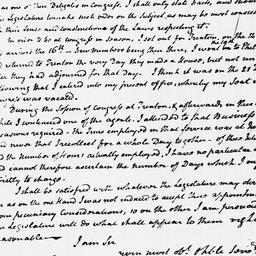 as one of their Delegates in Congress. I shall only state facts, and thereby
Legislature to make such order on the Subject, as may be most consis
with their sense and constructions of the Laws respecting it.
In order to be at Congress in Season, I set out for Trenton, on the
arrived the 16th — Few Members being then there, I went to Phila
returned to Trenton the very Day they made a house, but not un
they had adjourned for that day. I think it was on the 21st
following that I entered into my present office, whereby my Seat a
was vacated.
During the Session of Congress at Trenton, & afterwards in the
while I continued one of the agents. I attended to that Business
reasons required — the time employed in that service was at no
now that I recollect for a whole Day together — of this
the Number of Hours actually employed, I have no particular
cannot therefore ascertain the number of Days which I
strictly to charge.
I shall be satisfied with whatever the Legislature may
as on the one Hand I was not induced to accept these appointments
pecuniary Considerations, so on the other, I am persuaded
Legislature will do what shall appear to them right
reasonable —
I am Sir
your most obt. & hble Serv